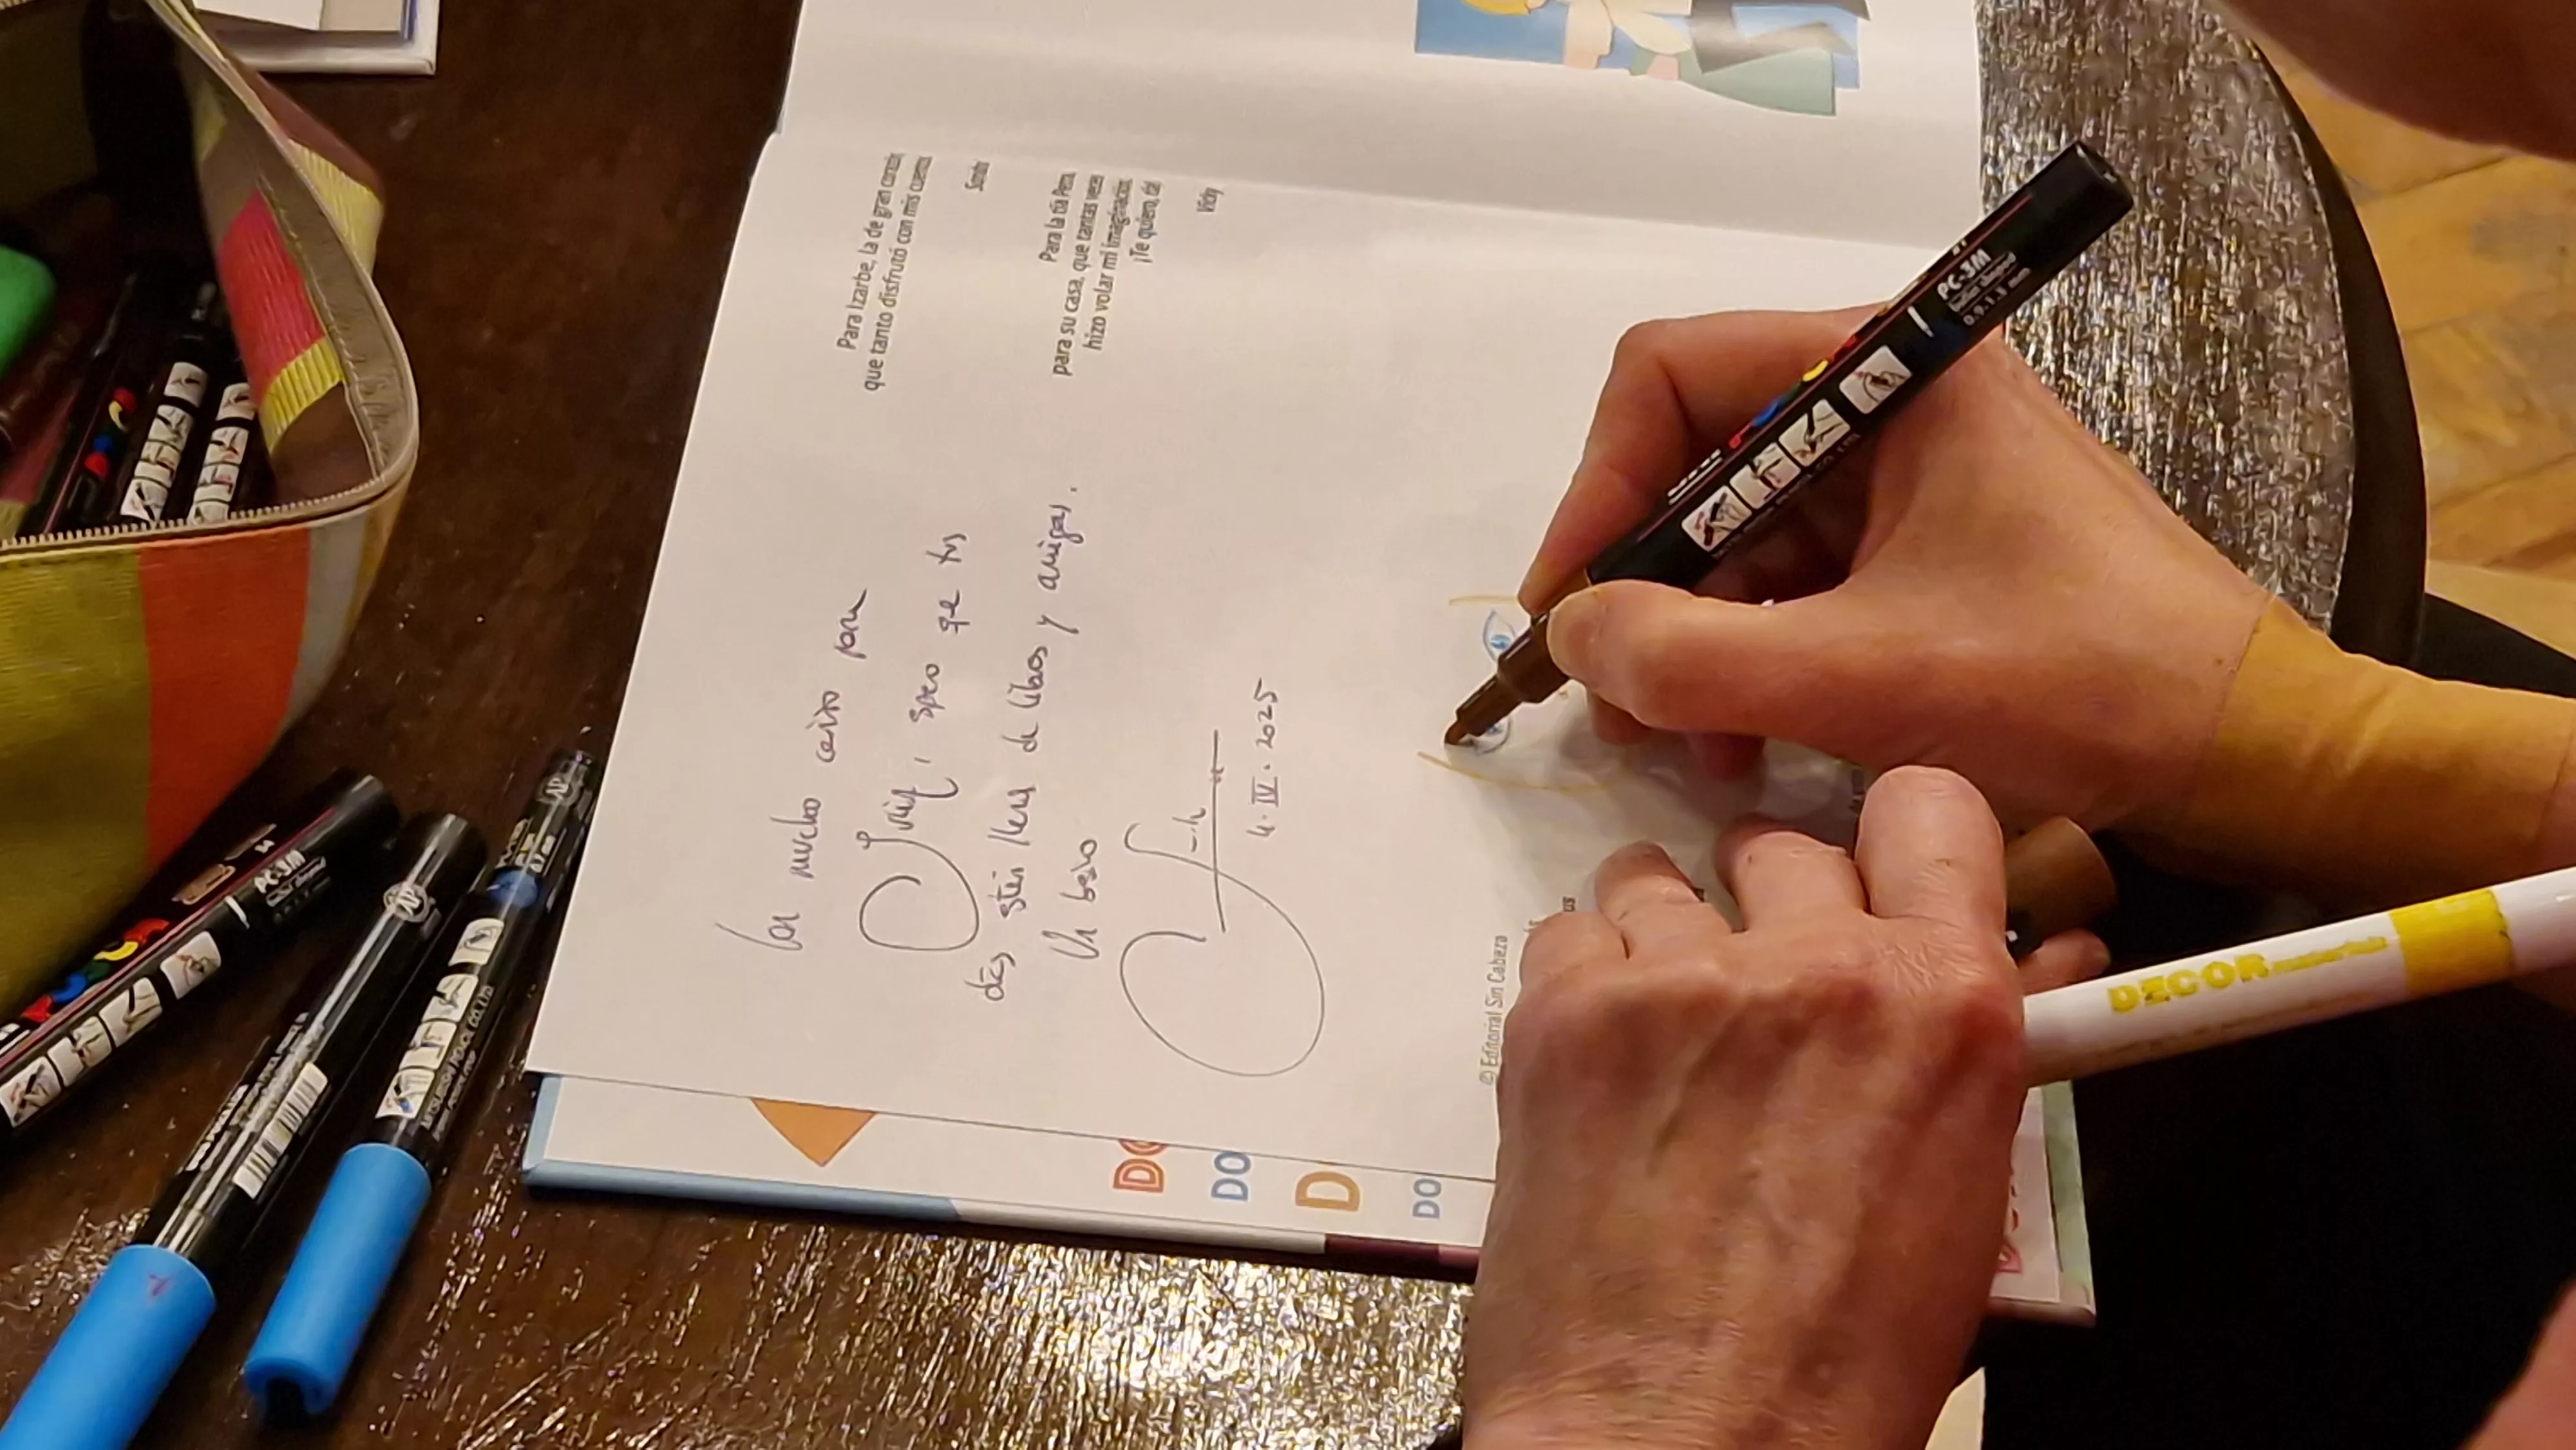 Para Izarbe, la de gran corazón,
que tanto disfrutó con mis cuentos.
Sandra
Para la tía Petra,
para su casa, que tantas veces
hizo volar mi imaginación.
¡Te quiero, tía!
Vicky
Con mucho cariño para
, spero qe tus
días stén llena de libros y amigas.
Un beso
4. IV. 2025
© Editorial Sin Cabeza
DO
DO
D
DO
PC-3M
0.9-1.3 mm
PC-3M
DECOR